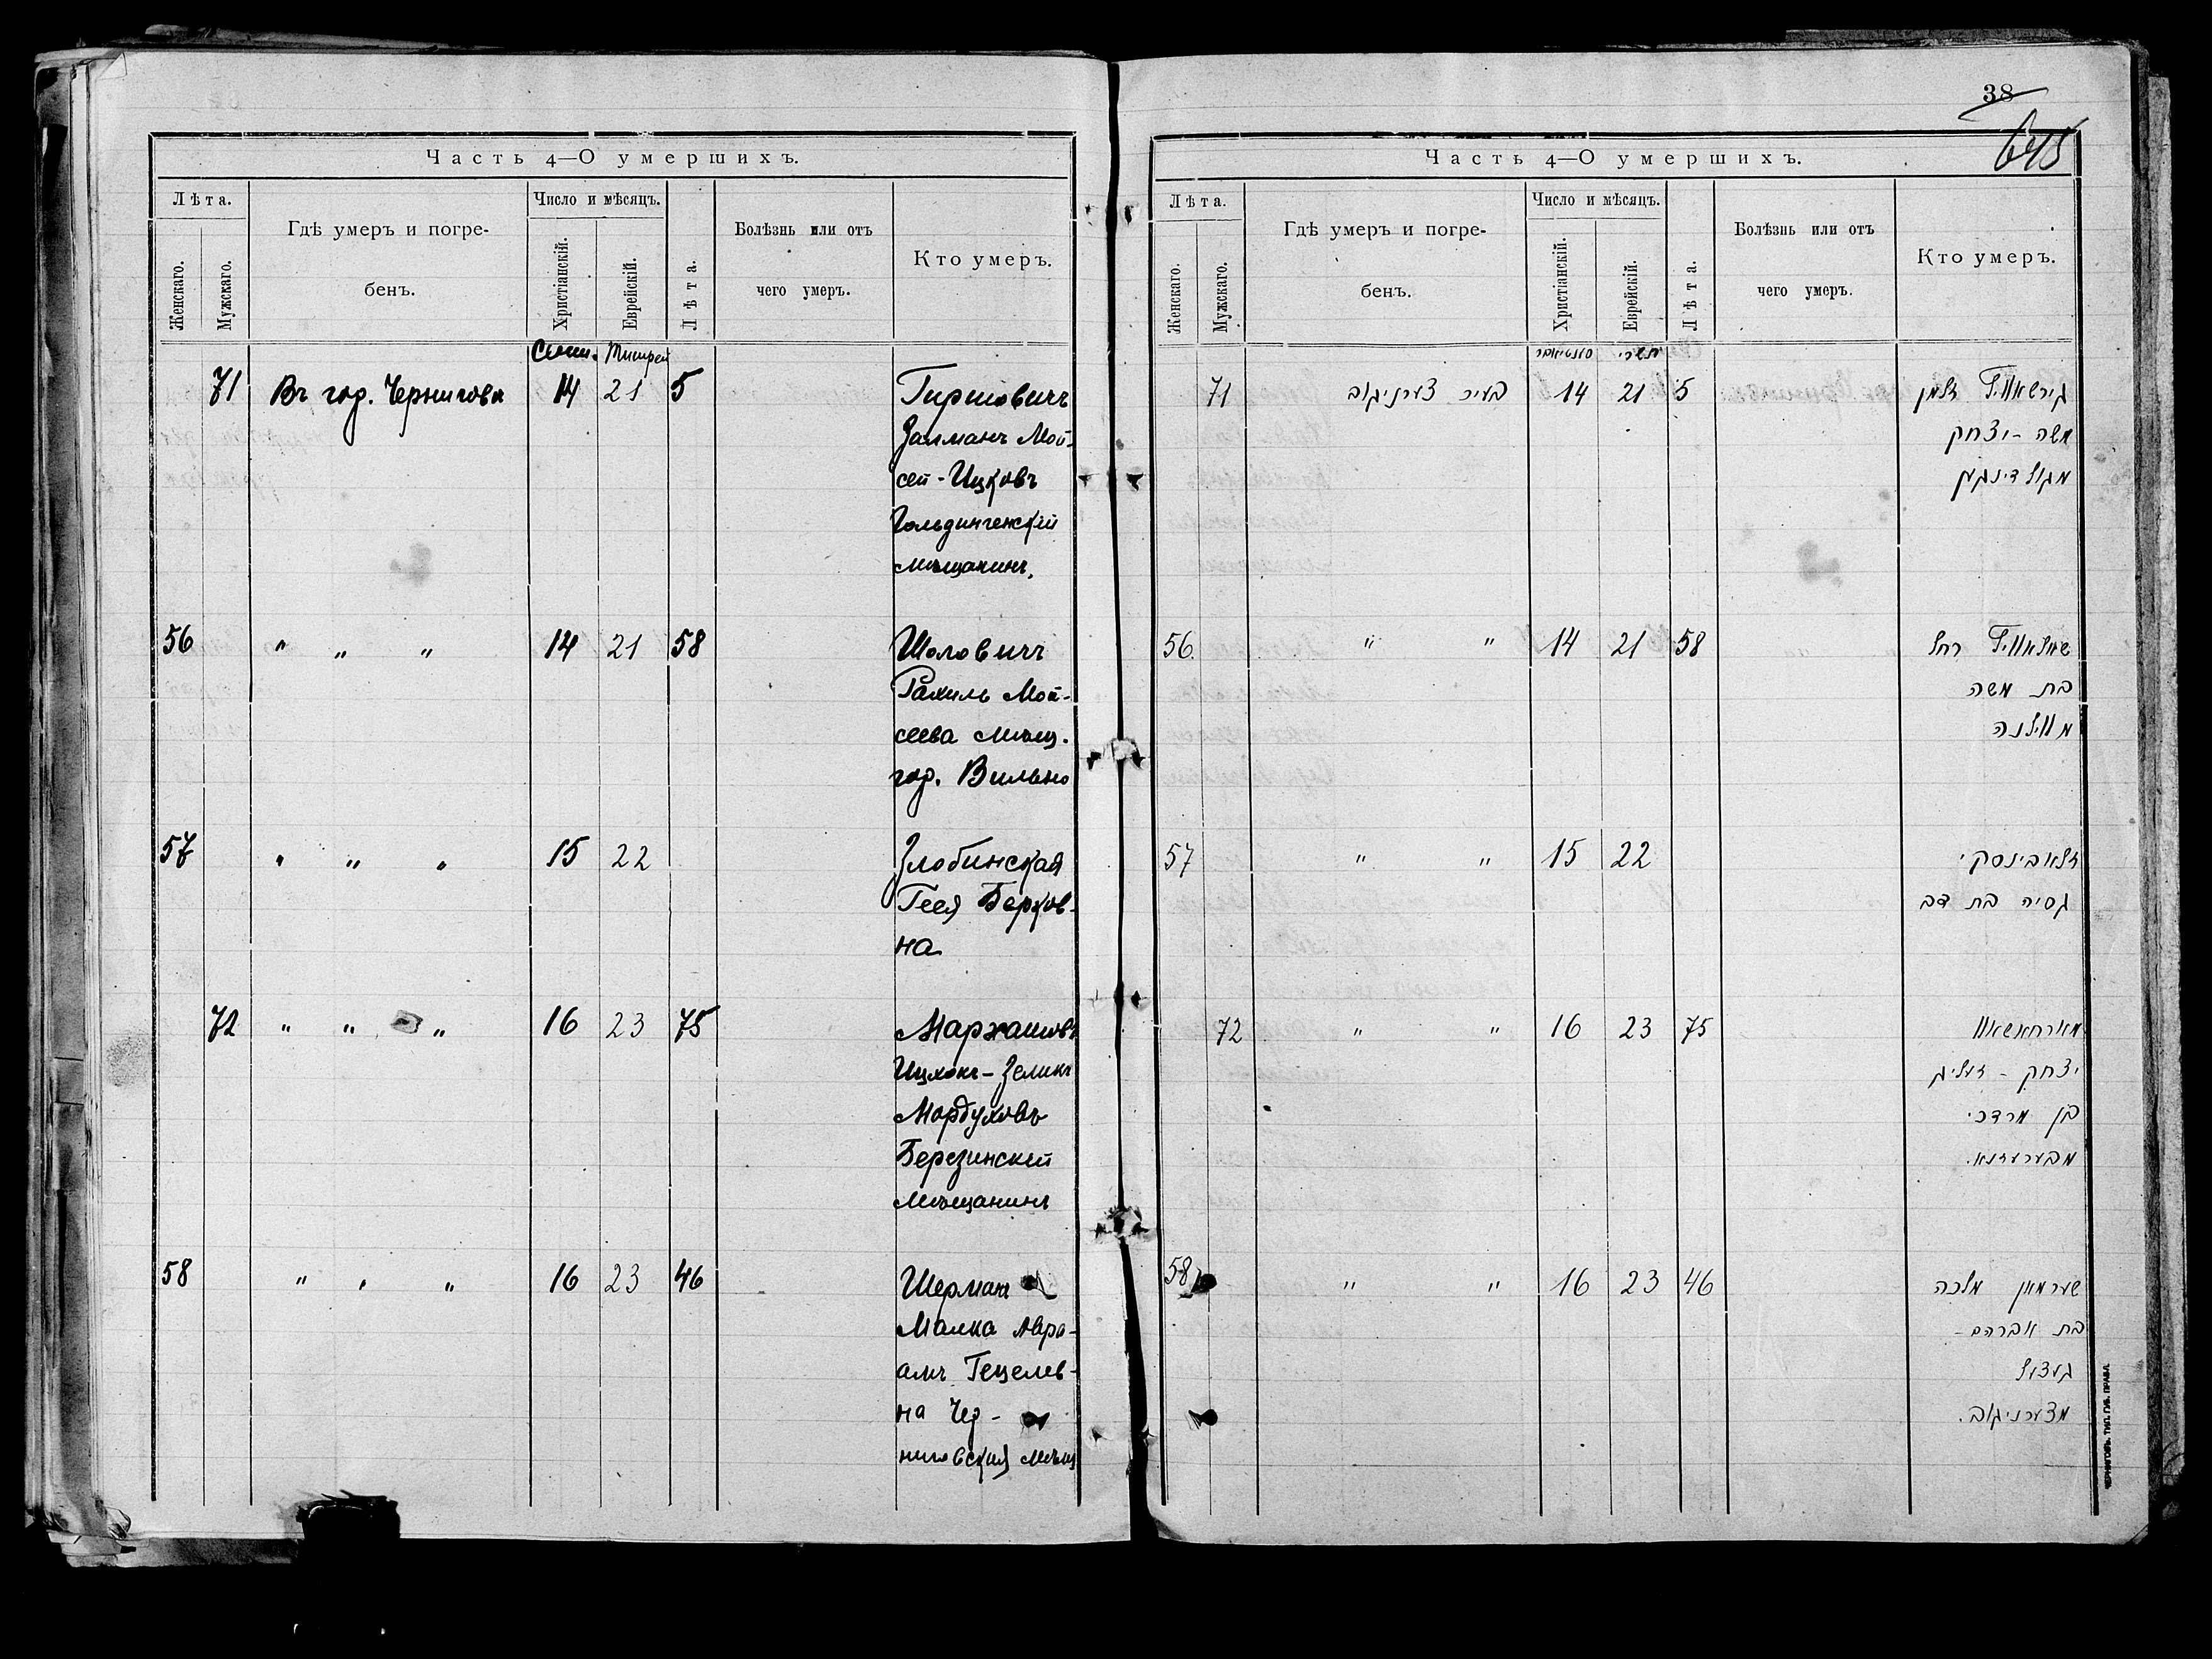 Часть 4—О умершихъ.
Лѣта.
Женскаго.
Мужскаго.
Гдѣ умеръ и погре-
бенъ.
Число и мѣсяцъ.
Христіанскій.
Еврейскій.
Лѣта.
Болѣзнь или отъ
чего умеръ.
Кто умеръ.
Сент. Тишрей
71 Въ гор. Черниговѣ 14 21 5 Гиршовичъ
Залманъ Мой-
сей-Ицковъ
Гольдингенскій
мѣщанинъ,
56 " " " 14 21 58 Шоловичъ
Рахиль Мой-
сеева мѣщ.
гор. Вильно
57 " " " 15 22 Злобинская
Геся Берков-
на
72 " " " 16 23 75 Мархашовъ
Ицхокъ-Зеликъ
Мордуховъ
Березинскій
мѣщанинъ
58 " " " 16 23 46 Шерманъ
Малка Абра-
амъ Гецелев-
на Чер-
ниговская мѣщ
38
645
Часть 4—О умершихъ.
Лѣта.
Женскаго.
Мужскаго.
Гдѣ умеръ и погре-
бенъ.
Число и мѣсяцъ.
Христіанскій.
Еврейскій.
Лѣта.
Болѣзнь или отъ
чего умеръ.
Кто умеръ.
תשרי
71 בעיר צערניגוב 14 21 5 גירשאוויץ זלמן
משה-יצחק
מגולדינגען
56. " " 14 21 58 שאלאוויץ רחל
בת משה
מווילנה
57 " " 15 22 זלאבינסקי
גסיה בת דב
72 " " 16 23 75 מארחאשאוו
יצחק - זעליג
בן מרדכי
מבערעזנא.
58 " " 16 23 46 שערמאן מלכה
בת אברהם-
געצול
מצערניגוב.
ЧЕРНИГОВЪ. ТИП. ГУБ. ПРАВЛ.